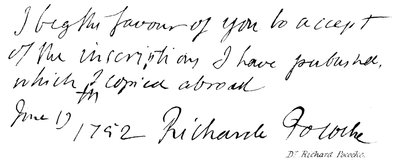 I beg the favour of you to accept
of the inscriptions I have published,
which I copied abroad
June 19
th
1752 Richard Pococke
Dr. Richard Pococke.